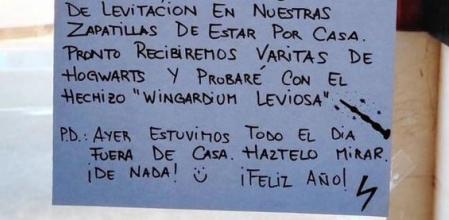 DE LEVITACIÓN EN NUESTRAS
ZAPATILLAS DE ESTAR POR CASA.
PRONTO RECIBIREMOS VARITAS DE
HOGWARTS Y PROBARÉ CON EL
HECHIZO "WINGARDIUM LEVIOSA".
P.D.: AYER ESTUVIMOS TODO EL DÍA
FUERA DE CASA. HAZTELO MIRAR.
¡DE NADA! ¡FELIZ AÑO!